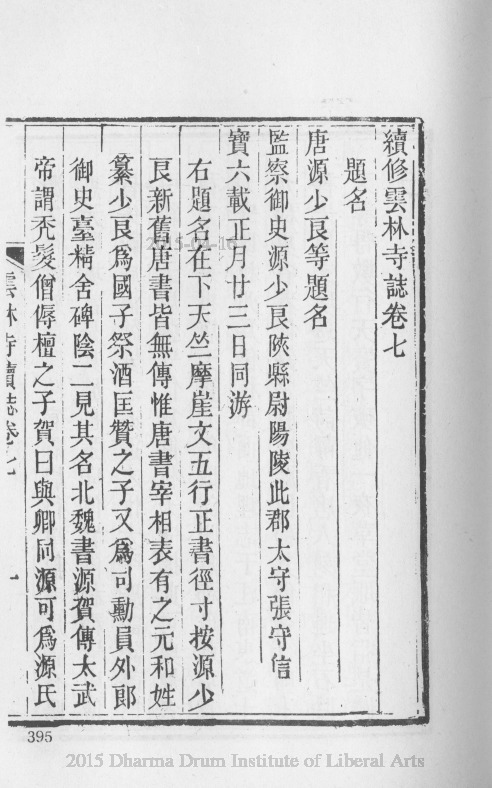 續修雲林寺誌卷七
題名
唐源少良等題名
監察御史源少良陝縣尉陽陵此郡太守張守信
寶六載正月廿三日同游
右題名在下天竺摩崖文五行正書徑寸按源少
良新舊唐書皆無傳惟唐書宰相表有之元和姓
纂少良爲國子祭酒匡贊之子又爲司勳員外郎
御史臺精舍碑陰二見其名北魏書源賀傳太武
帝謂禿髮僧傉檀之子賀曰與卿同源可爲源氏
雲林寺續誌卷七
一
395
2015-04-16
2015 Dharma Drum Institute of Liberal Arts